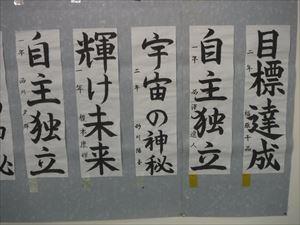 目標達成
二年
自主独立
一年
宇宙の神秘
二年
輝け未来
一年
自主独立
一年